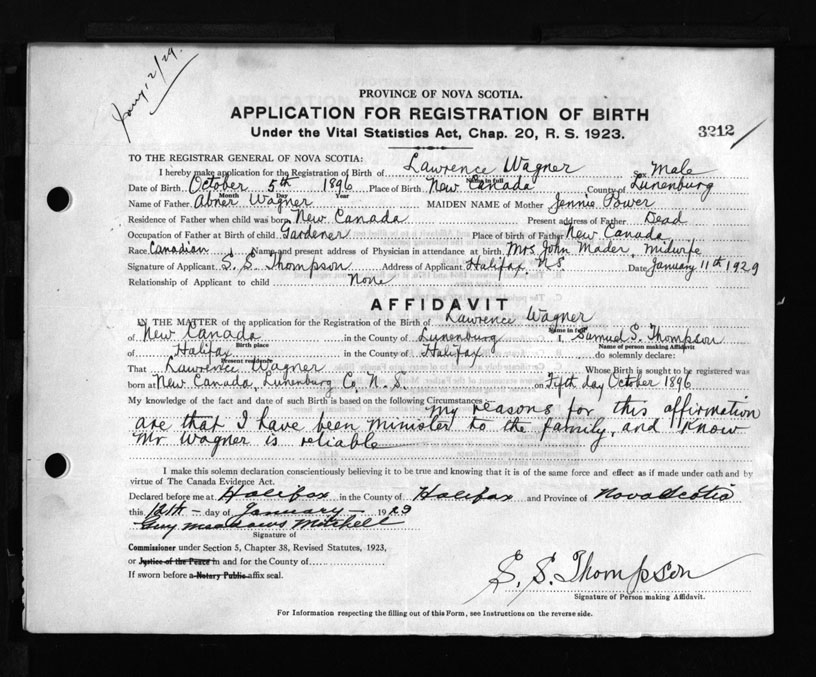 Jany 12/29
PROVINCE OF NOVA SCOTIA.
APPLICATION FOR REGISTRATION OF BIRTH
Under the Vital Statistics Act, Chap. 20, R. S. 1923.
3212
TO THE REGISTRAR GENERAL OF NOVA SCOTIA:
I hereby make application for the Registration of Birth of Lawrence Wagner Sex Male
Name in full
Date of Birth October 5th 1896 Place of Birth New Canada County of Lunenburg
Month Day Year
Name of Father Abner Wagner MAIDEN NAME of Mother Jennie
Residence of Father when child was born New Canada Present address of Father Dead
Occupation of Father at Birth of child Gardener Place of birth of Father New Canada
Race Canadian Name and present address of Physician in attendance at birth Mrs John Mader, midwife
Signature of Applicant S. S. Thompson Address of Applicant Halifax, N.S. Date January 11th 1929
Relationship of Applicant to child None
AFFIDAVIT
IN THE MATTER of the application for the Registration of the Birth of Lawrence Wagner
Name in full
of New Canada in the County of Lunenburg I, Samuel S. Thompson
Birth place Name of person making Affidavit
of Halifax in the County of Halifax do solemnly declare:
Present residence
That Lawrence Wagner Whose Birth is sought to be registered was
born at New Canada, Lunenburg Co, N. S. on Fifth day October 1896
My knowledge of the fact and date of such Birth is based on the following Circumstances my reasons for this affirmation
are that I have been minister to the family, and know
Mr Wagner is reliable
I make this solemn declaration conscientiously believing it to be true and knowing that it is of the same force and effect as if made under oath and by
virtue of The Canada Evidence Act.
Declared before me at Halifax in the County of Halifax and Province of Nova Scotia
this 12th day of January 1929
Guy Mitchell
Signature of
Commissioner under Section 5, Chapter 38, Revised Statutes, 1923,
or Justice of the Peace in and for the County of
If sworn before a Notary Public affix seal.
S. S. Thompson
Signature of Person making Affidavit.
For Information respecting the filling out of this Form, see Instructions on the reverse side.